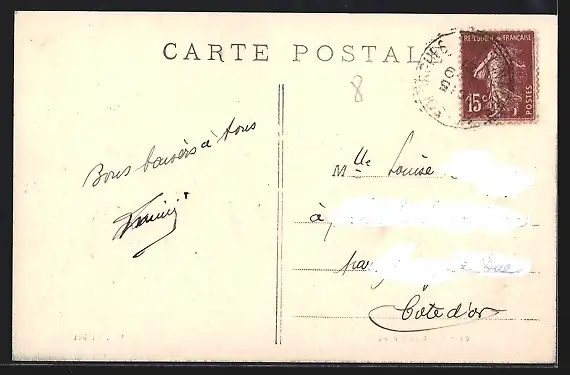 CARTE POSTALE
REPUBLIQUE FRANÇAISE
15c
POSTES
8
Bons baisers à tous
Mlle Louise
à
par
Côte d'or